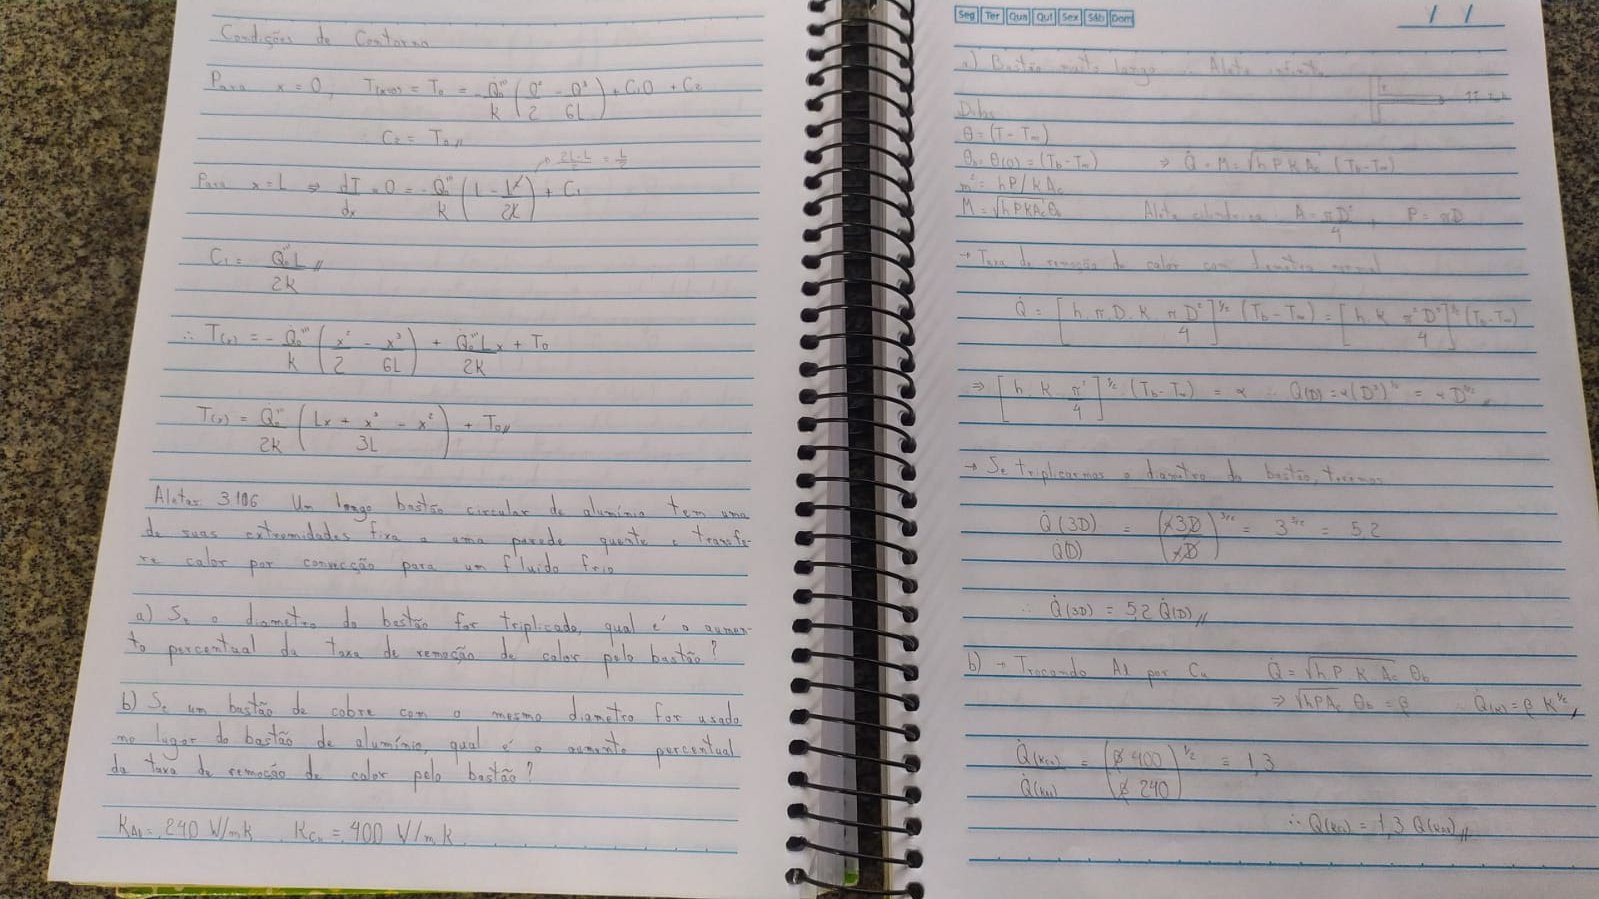 Condições de Contorno
Para x = 0, T(x=0) = T₀ = -Q̇₀'''/k (0²/2 - 0³/6L) + C₁0 + C₂
∴ C₂ = T₀//
→ 2L-L/2 = L/2
Para x = L ⇒ dT/dx = 0 = -Q̇₀'''/k (L - L²/2L) + C₁
C₁ = Q̇₀'''L/2k //
∴ T(x) = -Q̇₀'''/k (x²/2 - x³/6L) + Q̇₀'''L/2k x + T₀
T(x) = Q̇₀'''/2k (Lx + x³/3L - x²) + T₀//
Aletas 3.106 Um longo bastão circular de alumínio tem uma
de suas extremidades fixa a uma parede quente e transfe-
re calor por convecção para um fluido frio
a) Se o diametro do bastão for triplicado, qual é o aumen-
to percentual da taxa de remoção de calor pelo bastão?
b) Se um bastão de cobre com o mesmo diametro for usado
no lugar do bastão de alumínio, qual é o aumento percentual
da taxa de remoção de calor pelo bastão?
K_Al = 240 W/mk, K_Cu = 400 W/mk
Seg Ter Qua Qui Sex Sáb Dom
/ /
a) Bastão muito longo ∴ Aleta infinita
θ = (T - T∞)
θb = θ(0) = (Tb - T∞) ⇒ Q̇ = M = √hPKAc (Tb - T∞)
m² = hP/kAc
M = √hPKAc θb Aleta cilindrica: A = πD²/4, P = πD
→ Taxa de remoção de calor com diametro normal
Q̇ = [h.π.D.K.πD²/4]^1/2 (Tb - T∞) = [h.K π²D³/4]^1/2 (Tb - T∞)
⇒ [h.K.π²/4]^1/2 . (Tb - T∞) = α ∴ Q̇(D) = α(D³)^1/2 = αD^3/2 //
→ Se triplicarmos o diametro do bastão, teremos
Q̇(3D)/Q̇(D) = (α3D/αD)^3/2 = 3^3/2 = 5,2
∴ Q̇(3D) = 5,2 Q̇(D)//
b) → Trocando Al por Cu Q̇ = √h.P.K.Ac θb
⇒ √hPAc θb = β ∴ Q̇(k) = β K^1/2 //
Q̇(Kcu)/Q̇(KAl) = (β 400/β 240)^1/2 = 1,3
∴ Q̇(Kcu) = 1,3 Q̇(KAl)//